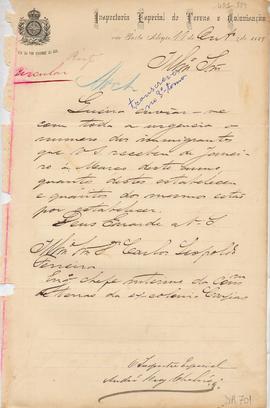 Inspectoria Especial de Terras e Colonisação
em Porto Alegre, 11 de de 1889
Circular
Illmo Snr.
Queira enviar-me
com toda a urgencia o
numero dos immigrantes
que V. S. recebeu de Janeiro
a Março deste anno
quantos destes estabeleceu
e quantos do mesmo estão
por estabelecer.
Deus Guarde a V. S.
Illmo Snr. Dr. Carlos Leopoldo
Ferreira
Engo chefe interino da
de terras da colonia
O Inspector Especial
DA 701